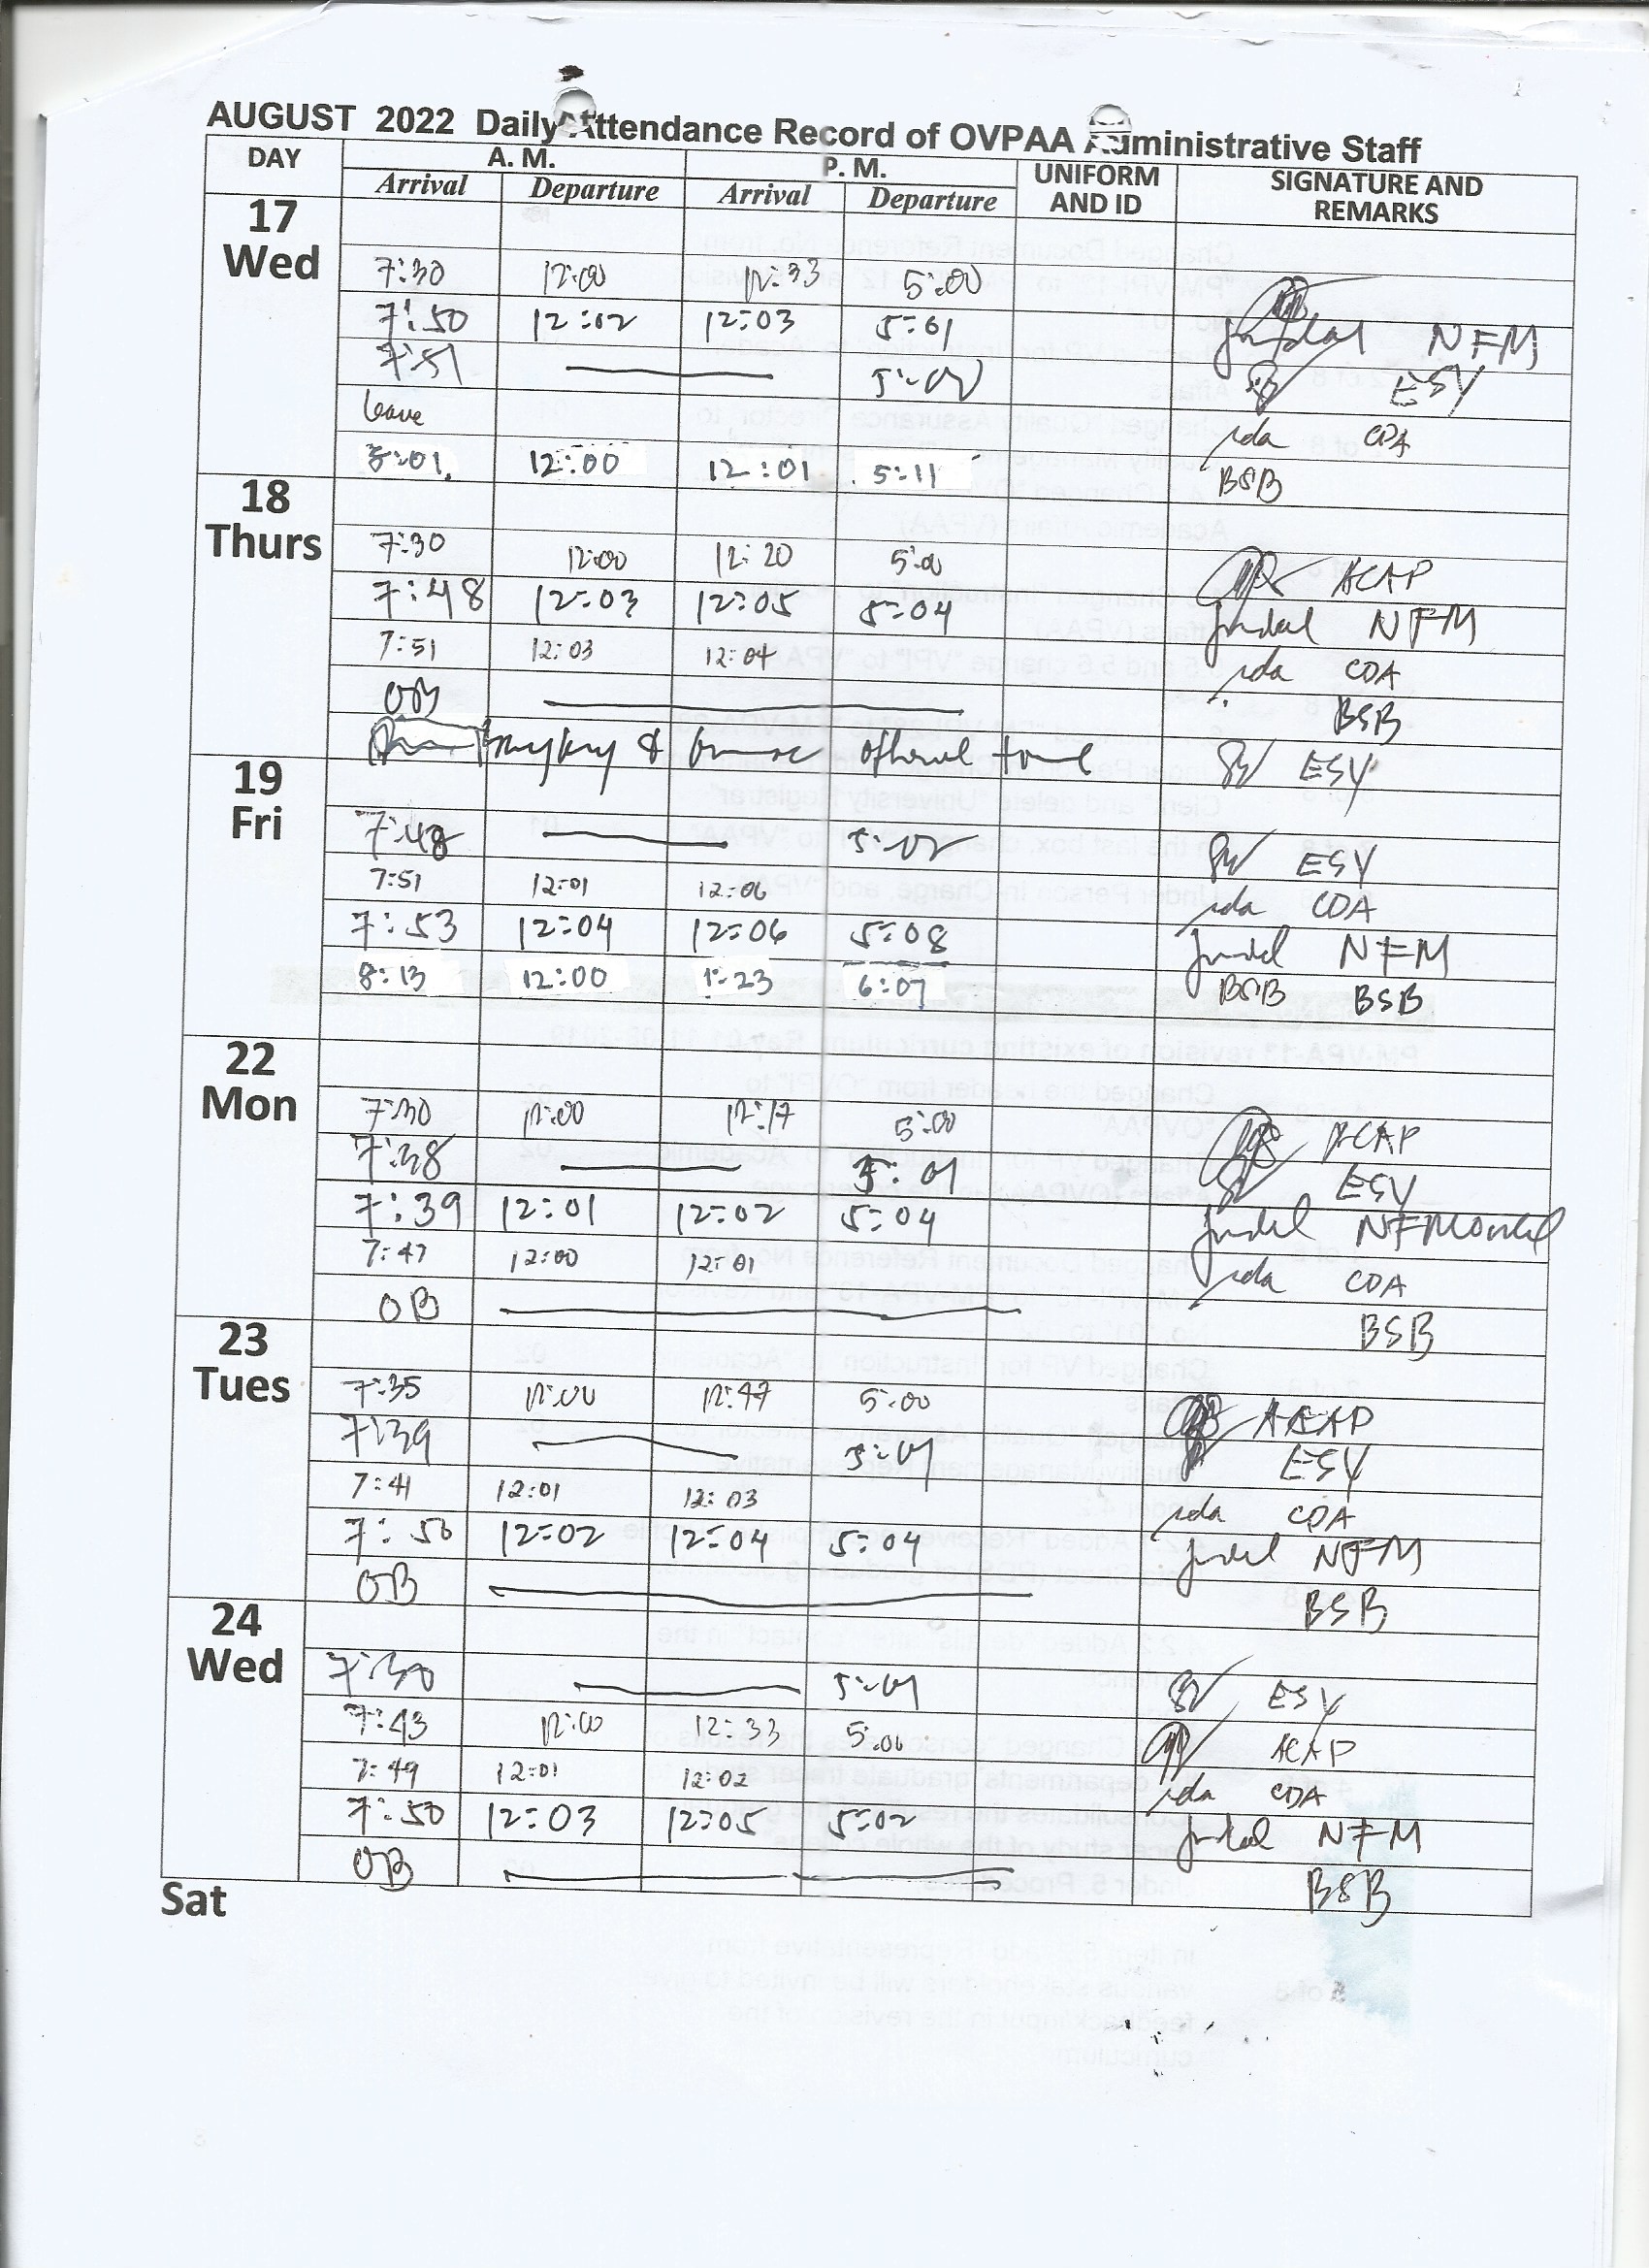 AUGUST 2022 Daily Attendance Record of OVPAA Administrative Staff
DAY A. M. P. M. UNIFORM AND ID SIGNATURE AND REMARKS
Arrival Departure Arrival Departure
17 Wed
7:30 12:00 12:33 5:00
7:50 12:02 12:03 5:01 NFM
7:51 5:00 ESY
leave CDA
8:01 12:00 12:01 5:11 BSB
18 Thurs
7:30 12:00 12:20 5:00 ACAP
7:48 12:03 12:05 5:04 NFM
7:51 12:03 12:04 CDA
OB BSB
ESY
19 Fri
7:48 5:02 ESY
7:51 12:01 12:06 CDA
7:53 12:04 12:06 5:08 NFM
8:13 12:00 1:23 6:07 BSB BSB
22 Mon
7:30 12:00 12:17 5:00 ACAP
7:38 5:01 ESY
7:39 12:01 12:02 5:04
7:47 12:00 12:01 CDA
OB BSB
23 Tues
7:35 12:00 12:47 5:00 ACAP
7:39 5:01 ESY
7:41 12:01 12:03 CDA
7:50 12:02 12:04 5:04 NFM
OB BSB
24 Wed
7:30 5:01 ESY
7:43 12:00 12:33 5:00 ACAP
7:49 12:01 12:02 CDA
7:50 12:03 12:05 5:02 NFM
OB BSB
Sat